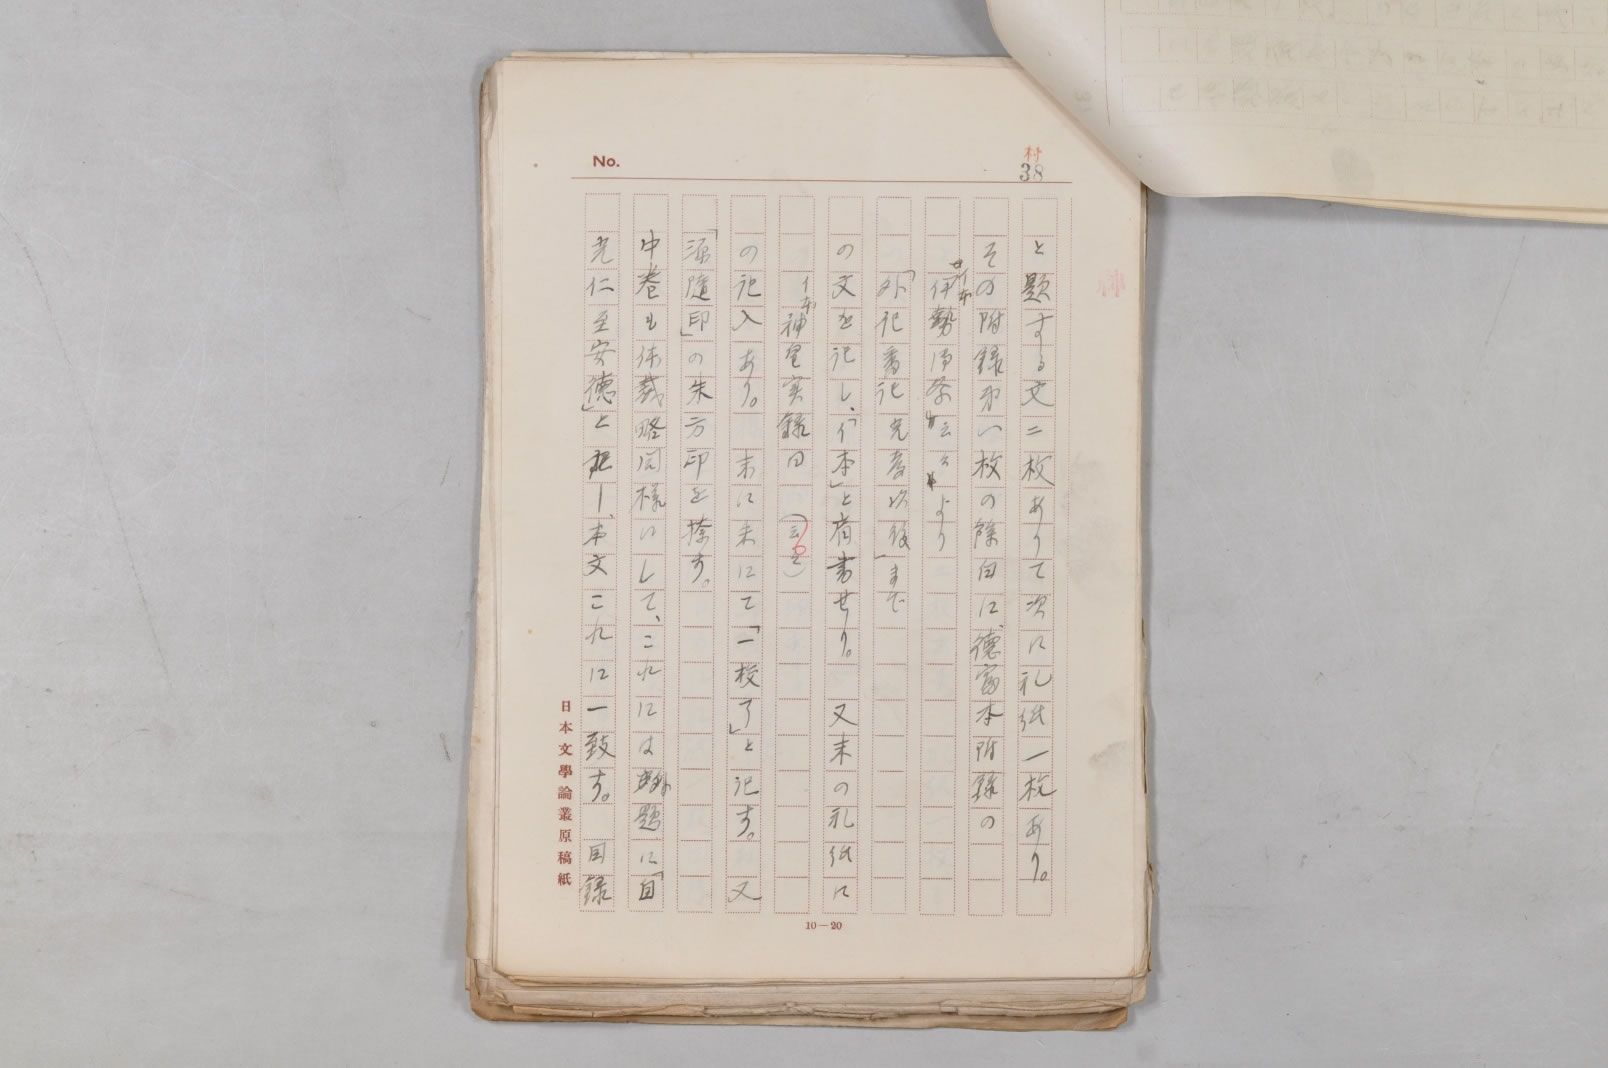 No.
村
38
と題する文二枚ありて次に礼紙一枚あり。
その附録第一枚の餘白に、德富本附録の
伊勢 云云より
「外記番記 以後」まで
の文を記し、「イ本」と肩書せり。 又末の礼紙に
イ本神皇実録曰 (云々)
の記入あり。 末に朱にて「一校了」と記す。 又
「源隆印」の朱方印を捺す。
中巻も体裁略同様にして、これには外題に「自
光仁至安德」と記し、本文これに一致す。 目録
日本文學論叢原稿紙
10—20